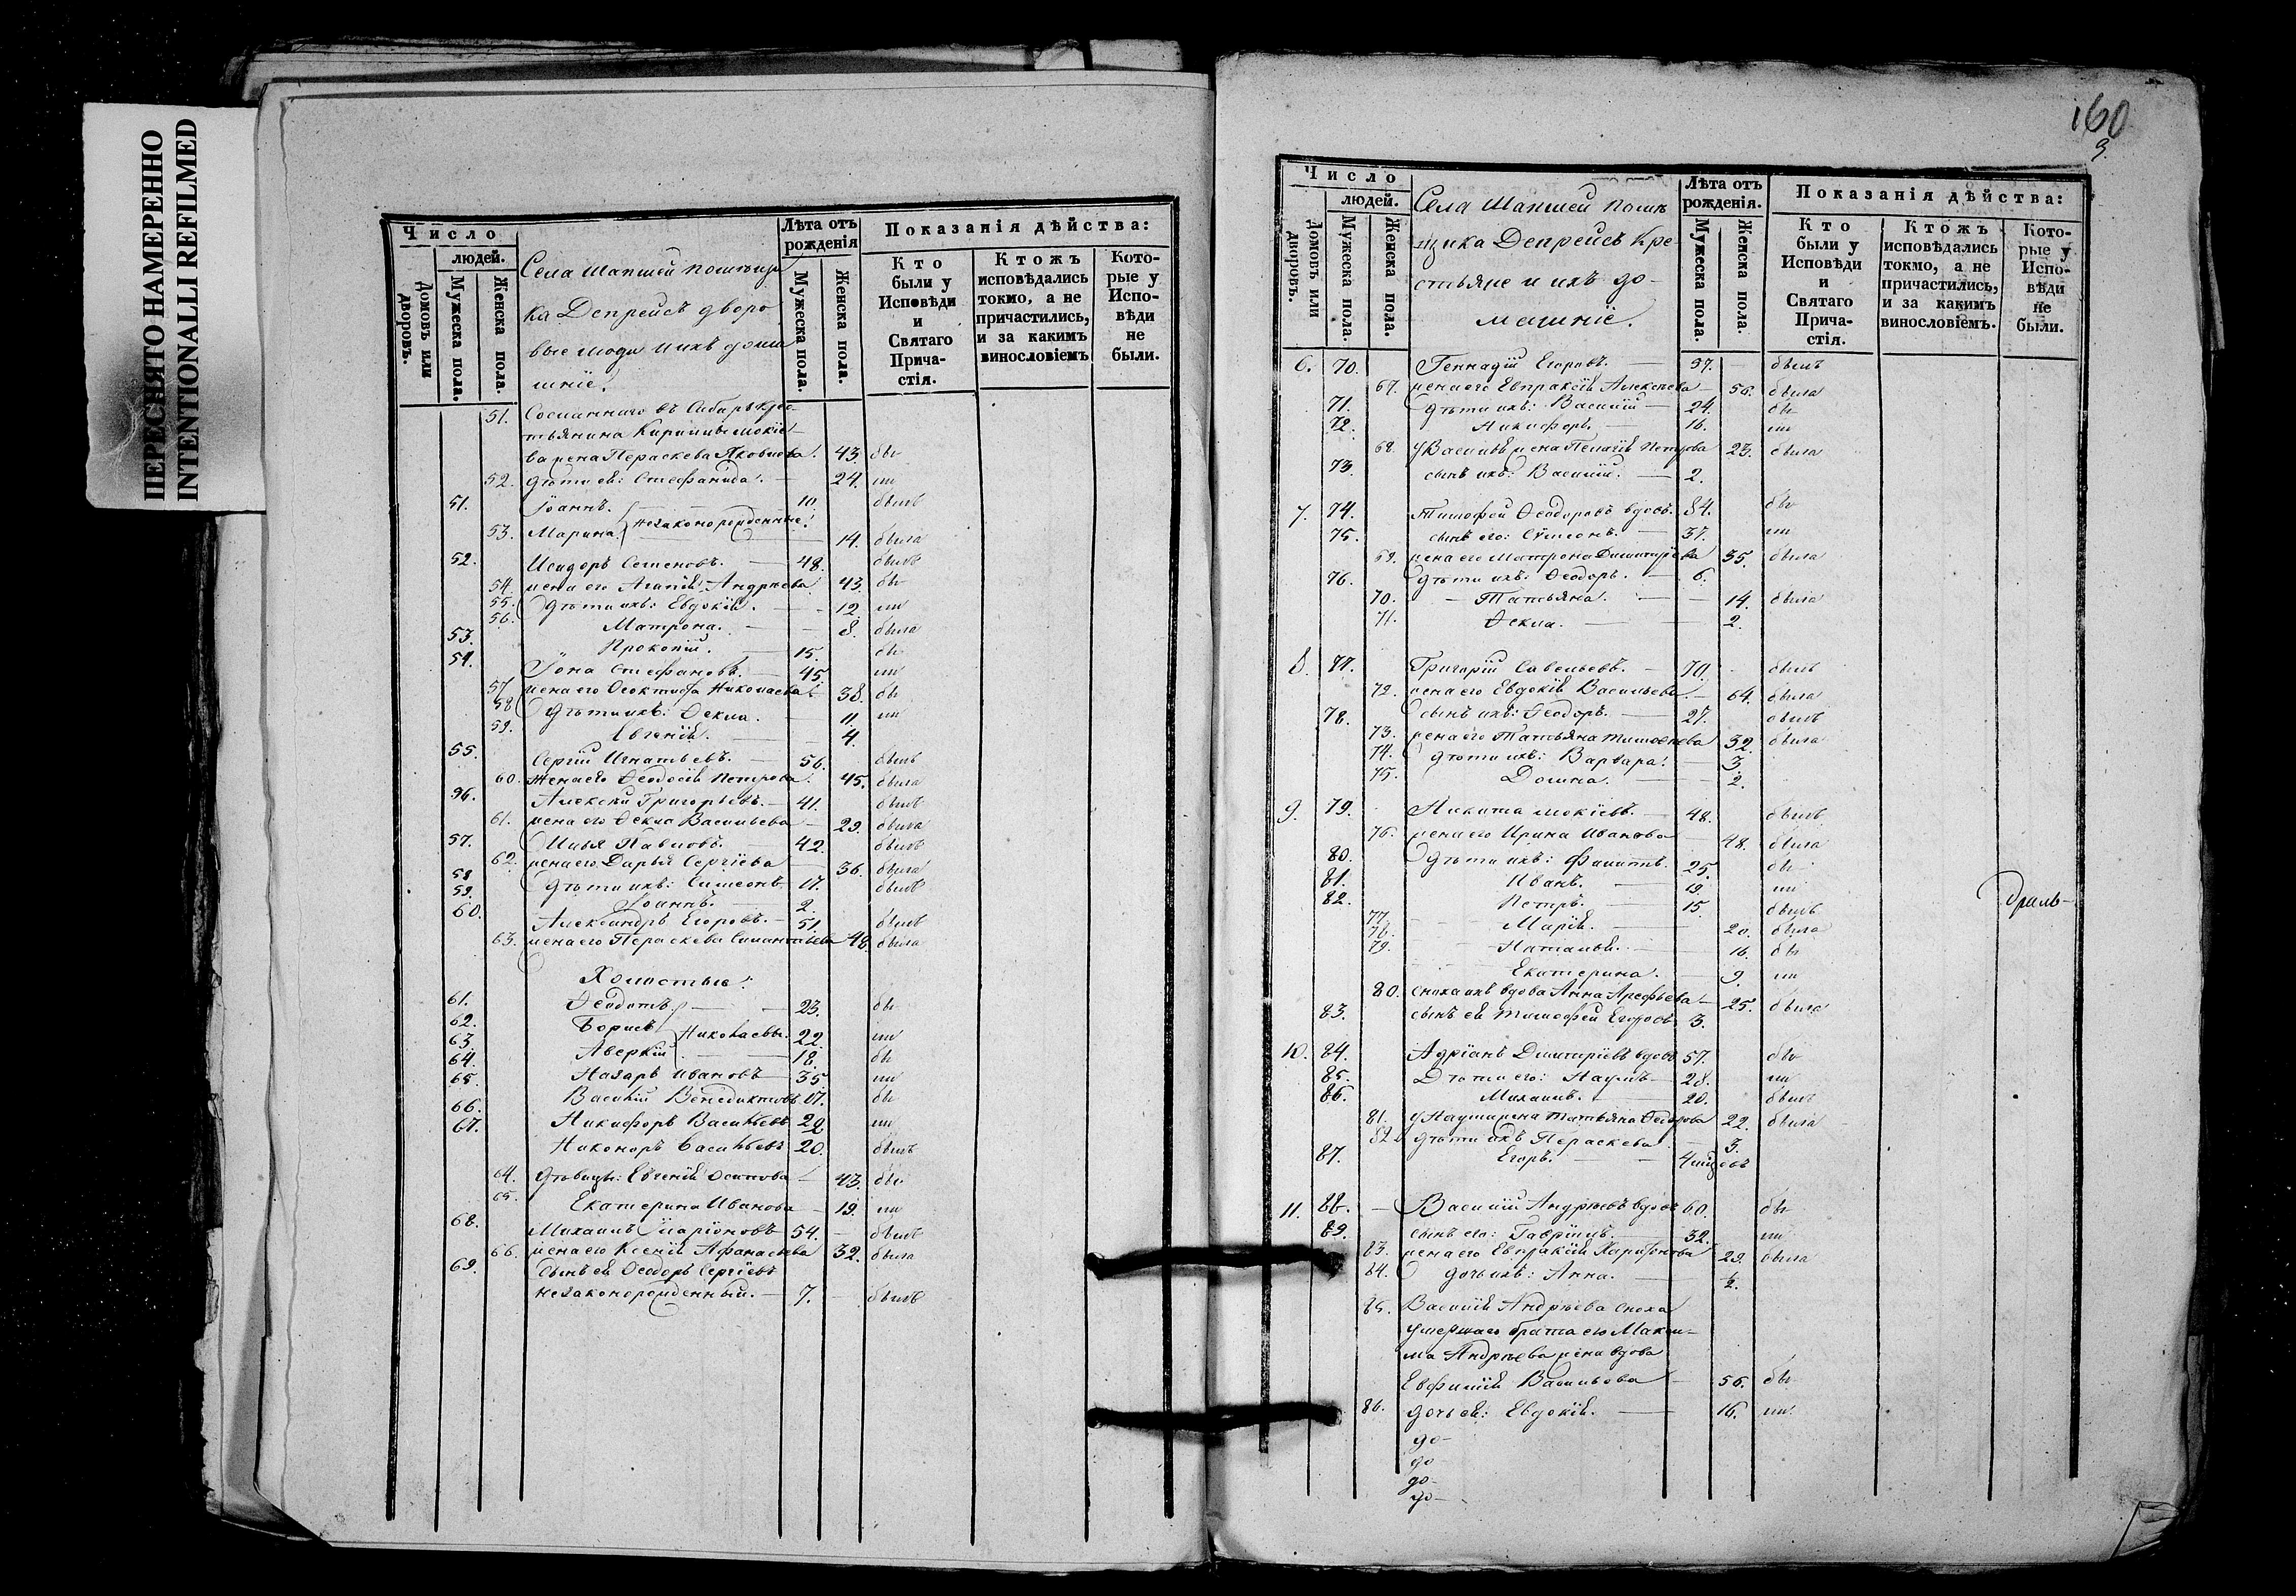 ПЕРЕСНЯТО НАМЕРЕННО
INTENTIONALLI REFILMED
Число
людей.
Домовъ или дворовъ.
Мужеска пола.
Женска пола.
Села Шапшей помѣщи
ка Депрейсъ дворо
вые люди и ихъ дома
шніе.
Лѣта отъ рожденія
Мужеска пола.
Женска пола.
Показанія дѣйства:
Кто были у Исповѣди и Святаго Причастія.
Ктожъ исповѣдались токмо, а не причастились, и за какимъ винословіемъ
Которые у Исповѣди не были.
51. Сосланнаго въ Сибирь крес-
тьянина Кирилы Мокіе-
ва жена Пераскева Яковлева. 43. бы
52. дѣти ей: Стефанида. 24. ли
51. Іоаннъ. 10. былъ
незаконорожденные
53. Марина. 14. была
52. Исидоръ Семеновъ. 48. былъ
54. жена его Агапія Андреева 43. бы
55. дѣти ихъ: Евдокія. 12. ли
56. Матрона. 8. была
53. Прокопій. 15. бы
54. Іона Стефановъ. 45. ли
57. жена его Феоктиста Николаева 38. бы
58. дѣти ихъ: Фекла. 11. ли
59. Евгенія. 4.
55. Сергій Игнатьевъ. 56. былъ
60. жена его Феодосія Петрова. 45. была
96. Алексѣй Григорьевъ. 41. былъ
61. жена его Фекла Васильева 29. была
57. Илья Павловъ. 42. былъ
62. жена его Дарья Сергіева 36. была
58. дѣти ихъ: Симеонъ 17. былъ
59. Іоаннъ. 2.
60. Александръ Егоровъ. 51. былъ
63. жена его Пераскева 48. была
Холостые:
61. Феодотъ 23. бы
62. Борисъ Николаевы. 22. ли
63. Аверкій 18. бы
64. Назаръ Ивановъ 35. ли
65. Василій Венедиктовъ 67. бы
66. Никифоръ Васильевъ 22 ли
67. Никаноръ Васильевъ 20. былъ
64. дѣвицы: Евгенія Осипова 43. бы
65. Екатерина Иванова 19. ли
68. Михаилъ Иларіоновъ 54. былъ
66. жена его Ксенія Афанасьева 32. была
69. Сынъ ей Феодоръ Сергіевъ
незаконорожденный. 7. былъ
160
9.
Число
людей.
Домовъ или дворовъ.
Мужеска пола.
Женска пола.
Села Шапшей помѣ
щика Депрейсъ кре-
стьяне и ихъ до-
машніе.
Лѣта отъ рожденія.
Мужеска пола.
Женска пола.
Показанія дѣйства:
Кто были у Исповѣди и Святаго Причастія.
Ктожъ исповѣдались токмо, а не причастились, и за какимъ винословіемъ.
Которые у Исповѣди не были.
6. 70. Геннадій Егоровъ. 57. былъ
67. жена его Евпраксія Алексѣева 56. была
71. дѣти ихъ: Василій 24. бы
72. Никифоръ. 16. ли
68. у Василья жена Пелагія Петрова 23. была
73. сынъ ихъ: Василій. 2.
7. 74. Тимофей Феодоровъ вдовъ. 84. бы
75. сынъ его: Симеонъ. 37. ли
69. жена его Матрона Димитріева 35. была
76. дѣти ихъ: Феодоръ. 6.
70. Татьяна. 14. была
71. Фекла. 2.
8. 77. Григорій Савельевъ. 70. былъ
72. жена его Евдокія Васильева. 64. была
78. сынъ ихъ: Феодоръ. 27. былъ
73. жена его Татьяна Тимофеева 32. была
74. дѣти ихъ: Варвара. 3.
75. Домна. 2.
9. 79. Никита Мокіевъ. 48. былъ
76. жена его Ирина Иванова 48. была
80. дѣти ихъ: Филиппъ. 25. бы
81. Иванъ. 19. ли
82. Петръ. 15. былъ
77. Марія. 20. была
78. Наталья. 16. бы
79. Екатерина. 9. ли
80. сноха ихъ вдова Анна Арефьева 25. была
83. сынъ ей Тимофей Егоровъ 3.
10. 84. Адріанъ Димитріевъ вдовъ 57. бы
85. Дѣти его: Наумъ 28. ли
86. Михаилъ. 20. былъ
81. у Наума жена Татьяна Федорова 22. была
82. дѣти ихъ Пераскева 3.
87. Егоръ. 4 мѣсяцовъ
11. 88. Василій Андреевъ вдовъ 60. бы
89. сынъ его: Гавріилъ. 32. ли
83. жена его Евпраксія Харитонова 29. была
84. дочь ихъ: Анна. ½.
85. Василія Андреева сноха
умершаго брата его Макси-
ма Андреева жена вдова
Евфимія Васильева 56. бы
86. дочь ей: Евдокія. 16. ли
до-
до
до-
до-